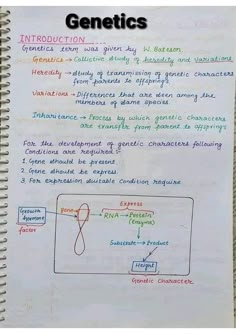 Genetics
INTRODUCTION......
Genetics term was given by W. Bateson
Genetics → Collective study of heredity and variations
Heredity → study of transmission of genetic characters
from parents to offsprings
Variations → Differences that are seen among the
members of same species
Inharitance → Process by which genetic characters
are transfer from parent to offsprings
For the development of genetic characters following
Conditions are required :-
1. Gene should be present.
2. Gene should be express
3. For expression suitable condition require.
Express
Growth
hormone
factor
gene
RNA → Protein
(Enzyme)
Substrate → Product
Height
Genetic Character